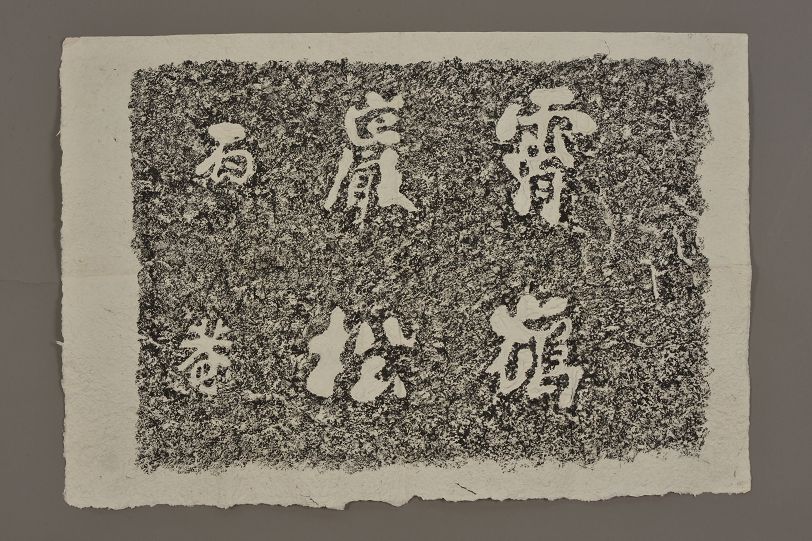 霄
巖松
石菴